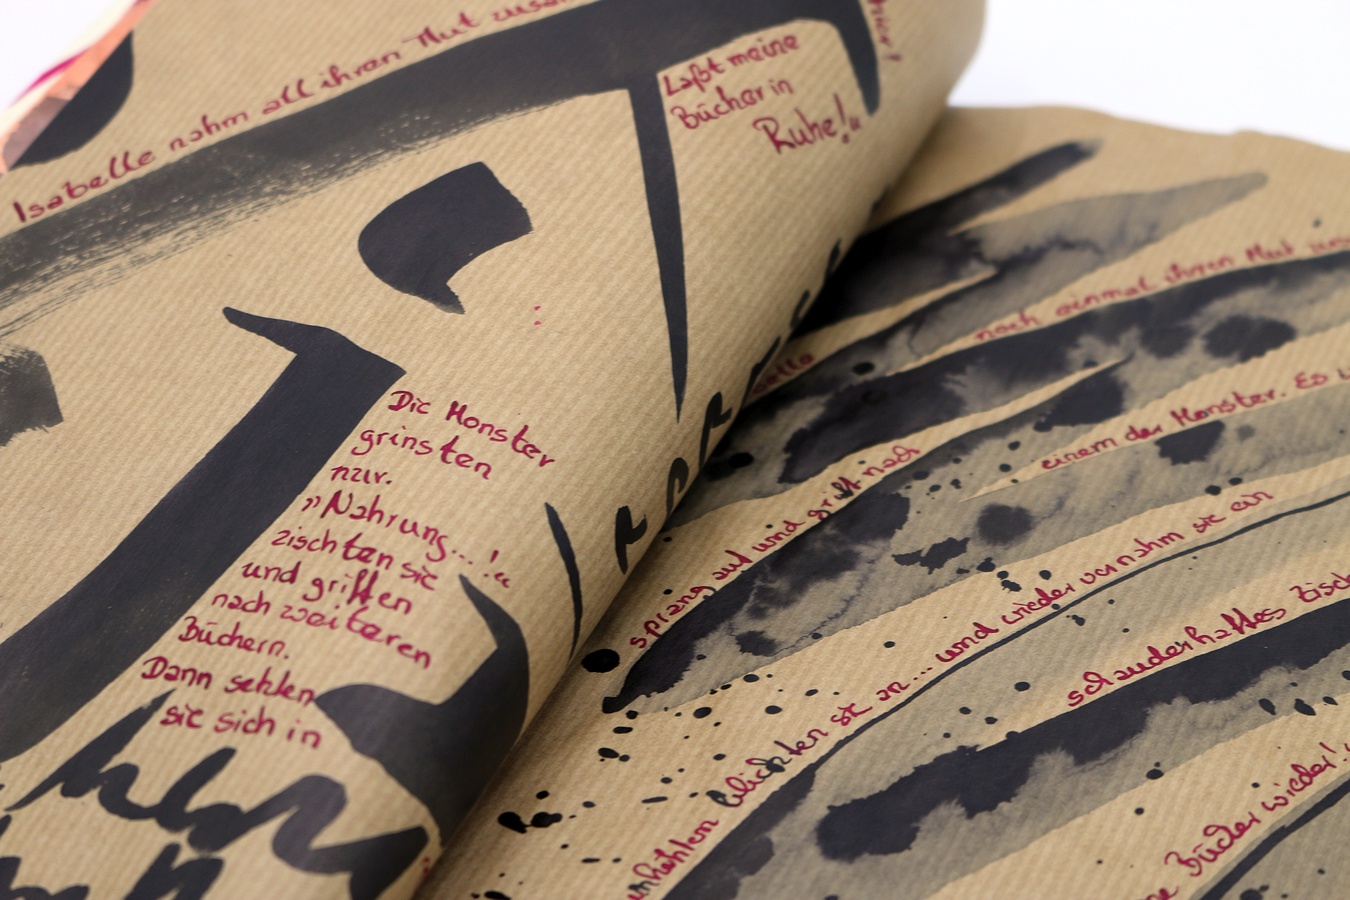 Isabelle nahm all ihren Mut
Laßt meine
Bücher in
Ruhe!“
Die Monster
grinsten
nur.
„Nahrung...!“
zischten sie
und griffen
nach weiteren
Büchern.
Dann sehten
sie sich in
noch einmal ihren Mut
sprang auf und griff nach
einem der Monster. Es
blickten sie an... und wieder vernahm sie ein
schauderhaftes
Bücher wieder!